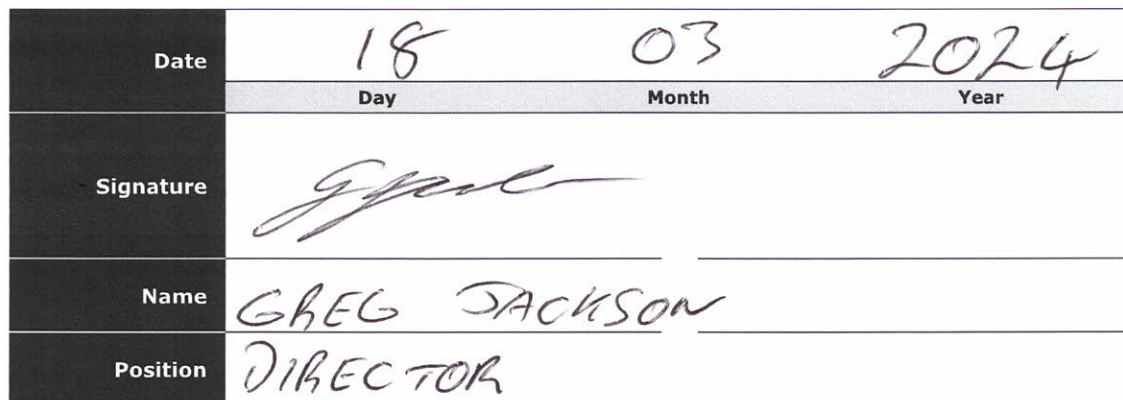 Date 18 03 2024
Day Month Year
Signature
Name GREG JACKSON
Position DIRECTOR